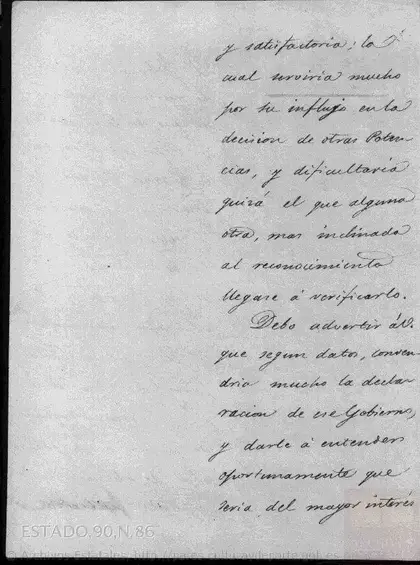 y satisfactoria; lo
cual serviria mucho
por su influjo en la
decision de otras Poten-
cias, y dificultaria
quizá el que alguna
otra, mas inclinada
al reconocimiento
llegase á verificarlo.
Debo advertir á V.
que segun datos, conven-
dria mucho la decla-
racion de ese Gobierno,
y darle á entender
oportunamente que
seria del mayor interés
ESTADO,90,N.86